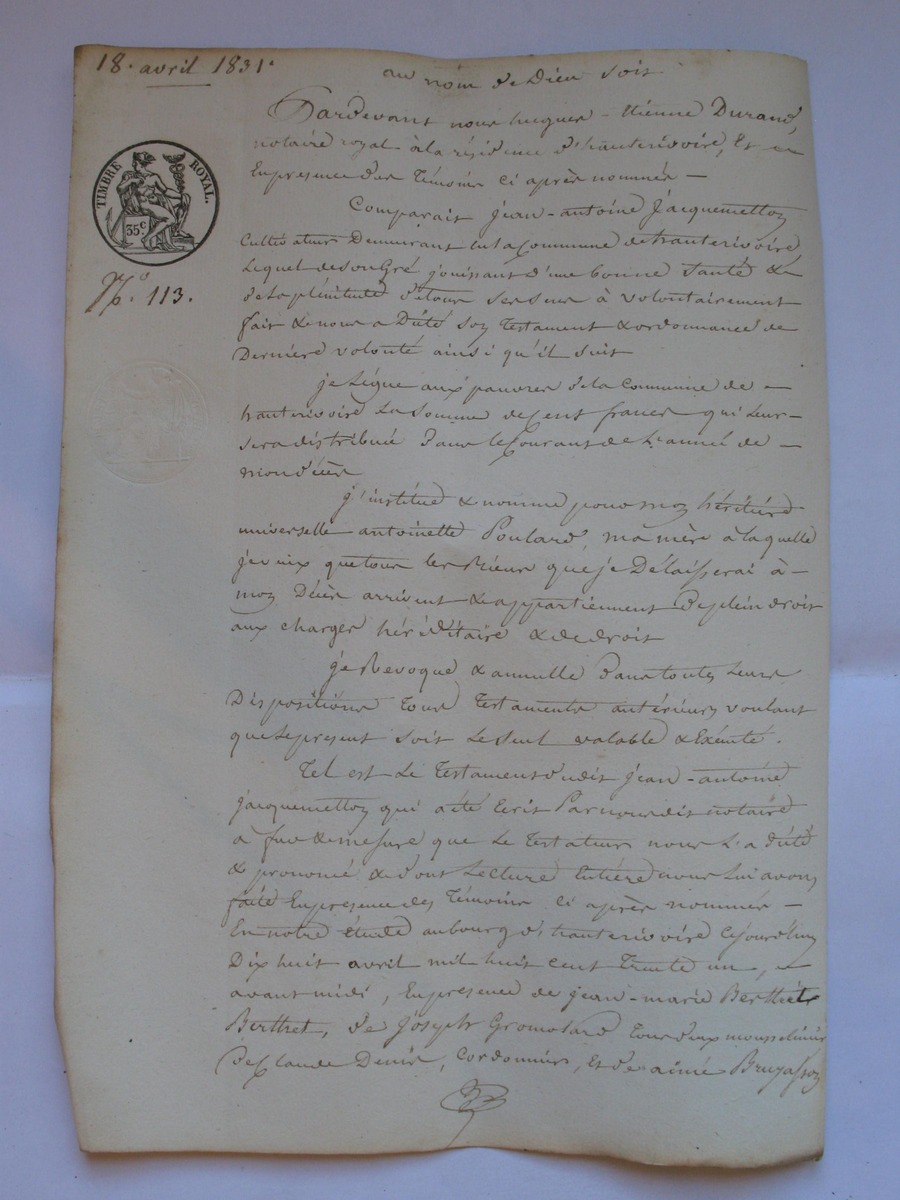 18. avril 1831.
au nom de Dieu soit
Pardevant nous hugues - Etienne Durand,
notaire royal à la résidence d'hauterivoire, Et en
Enpresence des Témoins ci après nommés —
TIMBRE ROYAL.
35 c.
N.º 113.
Comparait jean-antoine Jacquemetton
Cultivateur Demeurant en la Commune de hauterivoire
Lequel de son Gré jouissant d'une bonne Santé &
de la plénitude de tous ses sens à volontairement
fait & nous a Dicté son Testament & ordonnance de
Derniere volonté ainsi qu'il suit
je Lègue aux pauvres de la Commune de —
hauterivoire La Somme de Cent francs qui Leur —
sera distribuée Dans le Courant de L'année de —
mon décès
j'institue & nomme pour mon héritière
universelle antoinette Poulard, ma mère à laquelle
je veux que tous les Biens que je Délaisserai à —
mon Décès arrivent & appartiennent De plein droit
aux charges héréditaire & de droit
je Revoque & annulle Dans toutes Leurs
Dispositions Tous Testaments antérieurs voulant
que le present soit Le seul valable & Exécuté.
Tel est Le Testament dudit jean-antoine
jacquemetton qui a été Ecrit Par nous dit notaire
à fur & mesure que Le Testateur nous L'a dicté
& prononcé & dont Lecture Entière nous Lui avons
faite Enpresence des Témoins ci après nommés —
En notre étude au bourg d'hauterivoire Cejourd'huy
Dix huit avril mil huit cent Trente un,
avant midi, Enpresence de jean-marie Berthet
Berthet, de Joseph Gromolard Tous deux mousseliniers
de Claude Denis, Cordonnier, Et de aimé Bruyasson